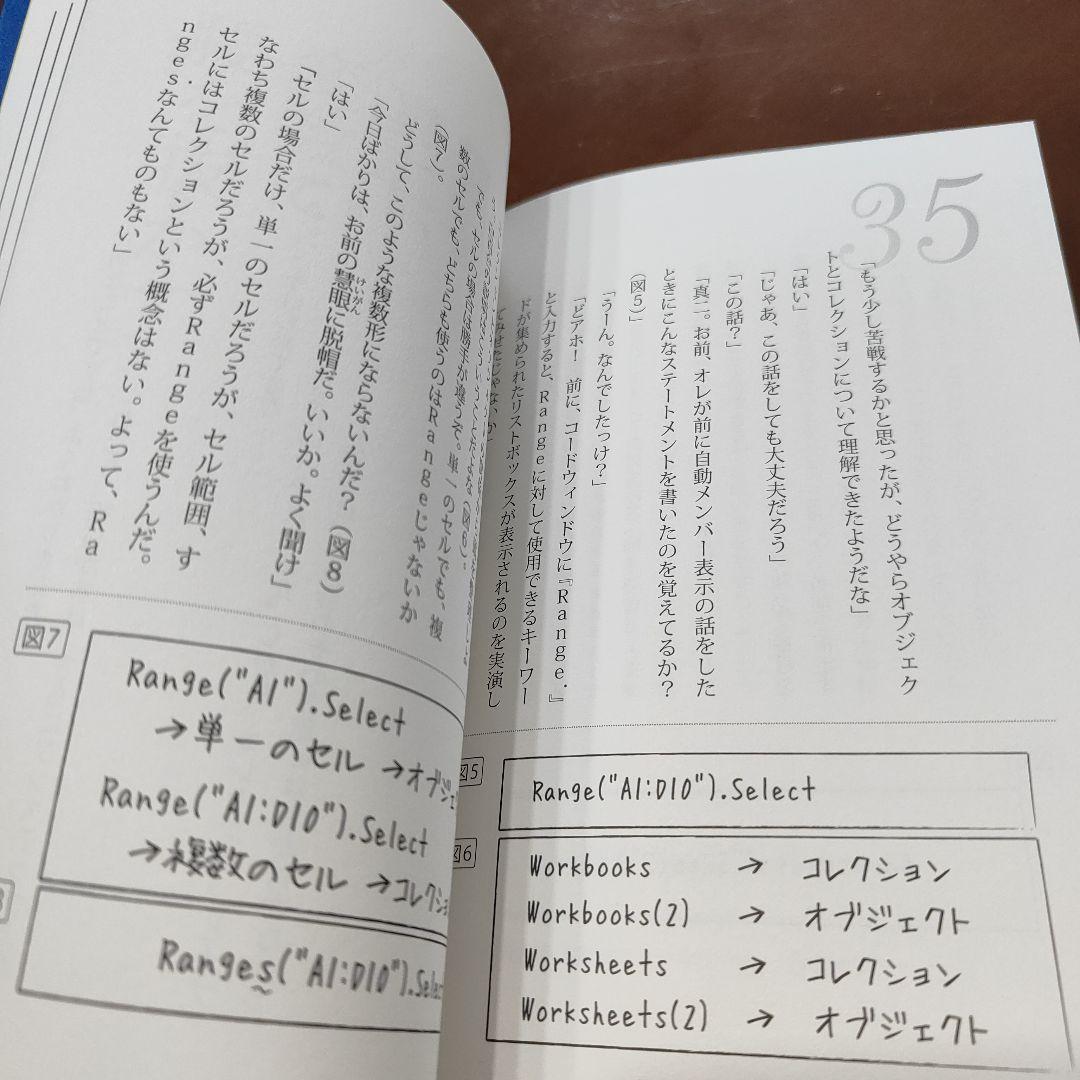 35
「もう少し苦戦するかと思ったが、どうやらオブジェク
トとコレクションについて理解できたようだな」
「はい」
「じゃあ、この話をしても大丈夫だろう」
「この話?」
「真二。お前、オレが前に自動メンバー表示の話をした
ときにこんなステートメントを書いたのを覚えてるか?
(図5)」
「うーん。なんでしたっけ?」
「どアホ! 前に、コードウィンドウに『Range.』
と入力すると、Rangeに対して使用できるキーワー
ドが集められたリストボックスが表示されるのを実演し
てみせたじゃないか」
図5
Range("A1:D10").Select
図6
Workbooks → コレクション
Workbooks(2) → オブジェクト
Worksheets → コレクション
Worksheets(2) → オブジェクト
でも、セルの場合は勝手が違うぞ。単一のセルでも、複
数のセルでも、どちらも使うのはRangeじゃないか
(図7)。
どうして、このような複数形にならないんだ?(図8)
「今日ばかりは、お前の慧眼に脱帽だ。いいか。よく聞け」
けいがん
「はい」
「セルの場合だけ、単一のセルだろうが、セル範囲、す
なわち複数のセルだろうが、必ずRangeを使うんだ。
セルにはコレクションという概念はない。よって、Ra
ngesなんてものもない」
図7
Range("A1").Select
→単一のセル →オブジェ
Range("A1:D10").Select
→複数のセル →コレクショ
Ranges("A1:D10").Selec